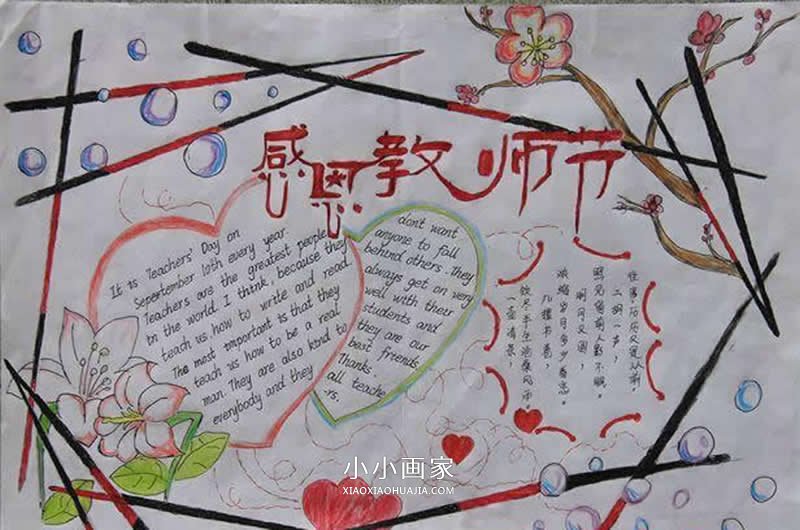 感恩教师节
It is Teachers' Day on
Seperember 10th every year.
Teachers are the greatest people
in the world. I think, because they
teach us how to write and read.
The most important is that they
teach us how to be a real
man. They are also kind to
everybody and they
don't want
anyone to fall
behind others. They
always get on very
well with their
students and
they are our
best friends.
Thanks
all teache
-rs.
一盏清茶,
饮尽半生沧桑风雨。
几摞书卷,
浓缩岁月多少眷恋。
明月又圆,
照见窗前人影不眠。
二胡一声,
往事,历历又现从前。
小小画家
XIAOXIAOHUAJIA.COM